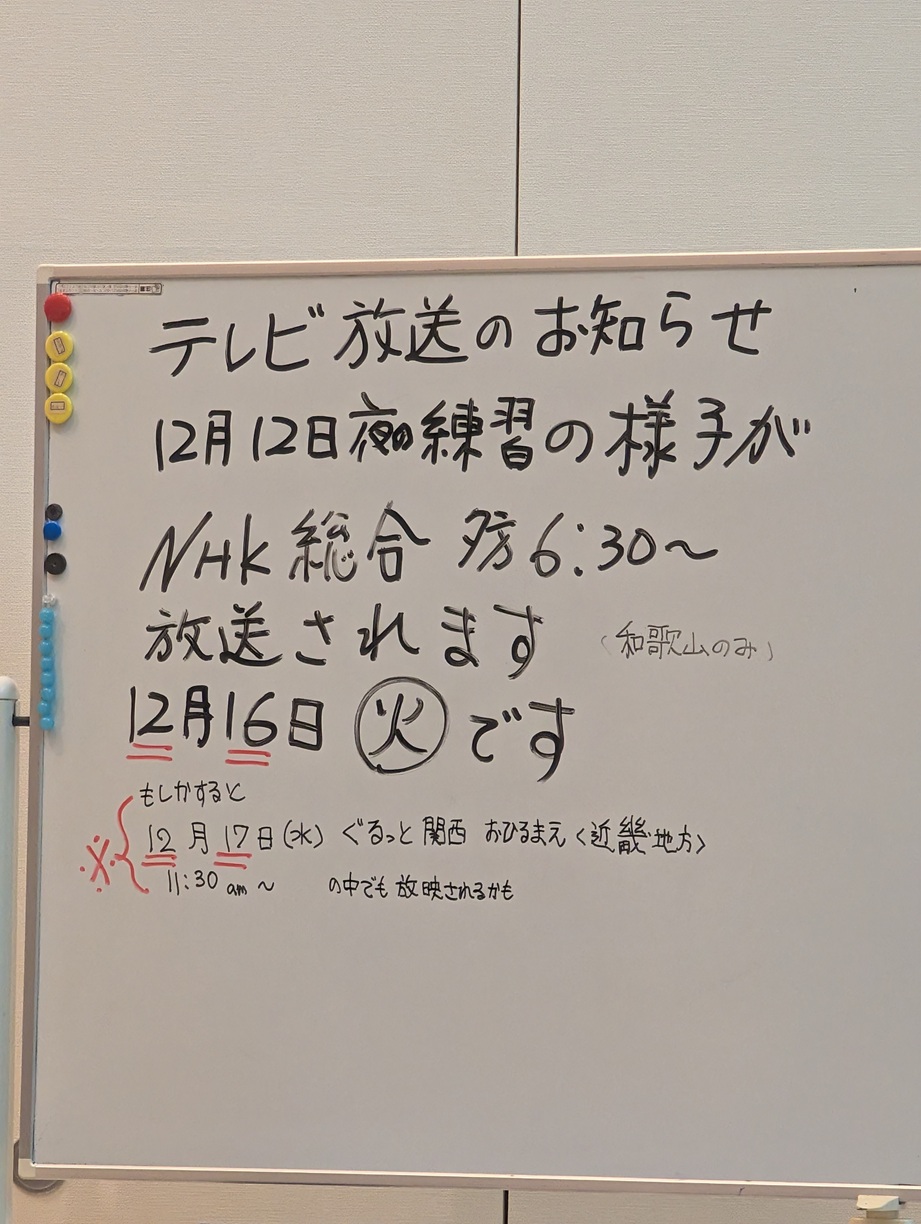 テレビ放送のお知らせ
12月12日夜の練習の様子が
NHK 総合 夕方 6:30～
放送されます (和歌山のみ)
12月16日 火 です
もしかすると
※ 12月17日(水) ぐるっと関西 おひるまえ <近畿地方>
11:30 am ～ の中でも放映されるかも